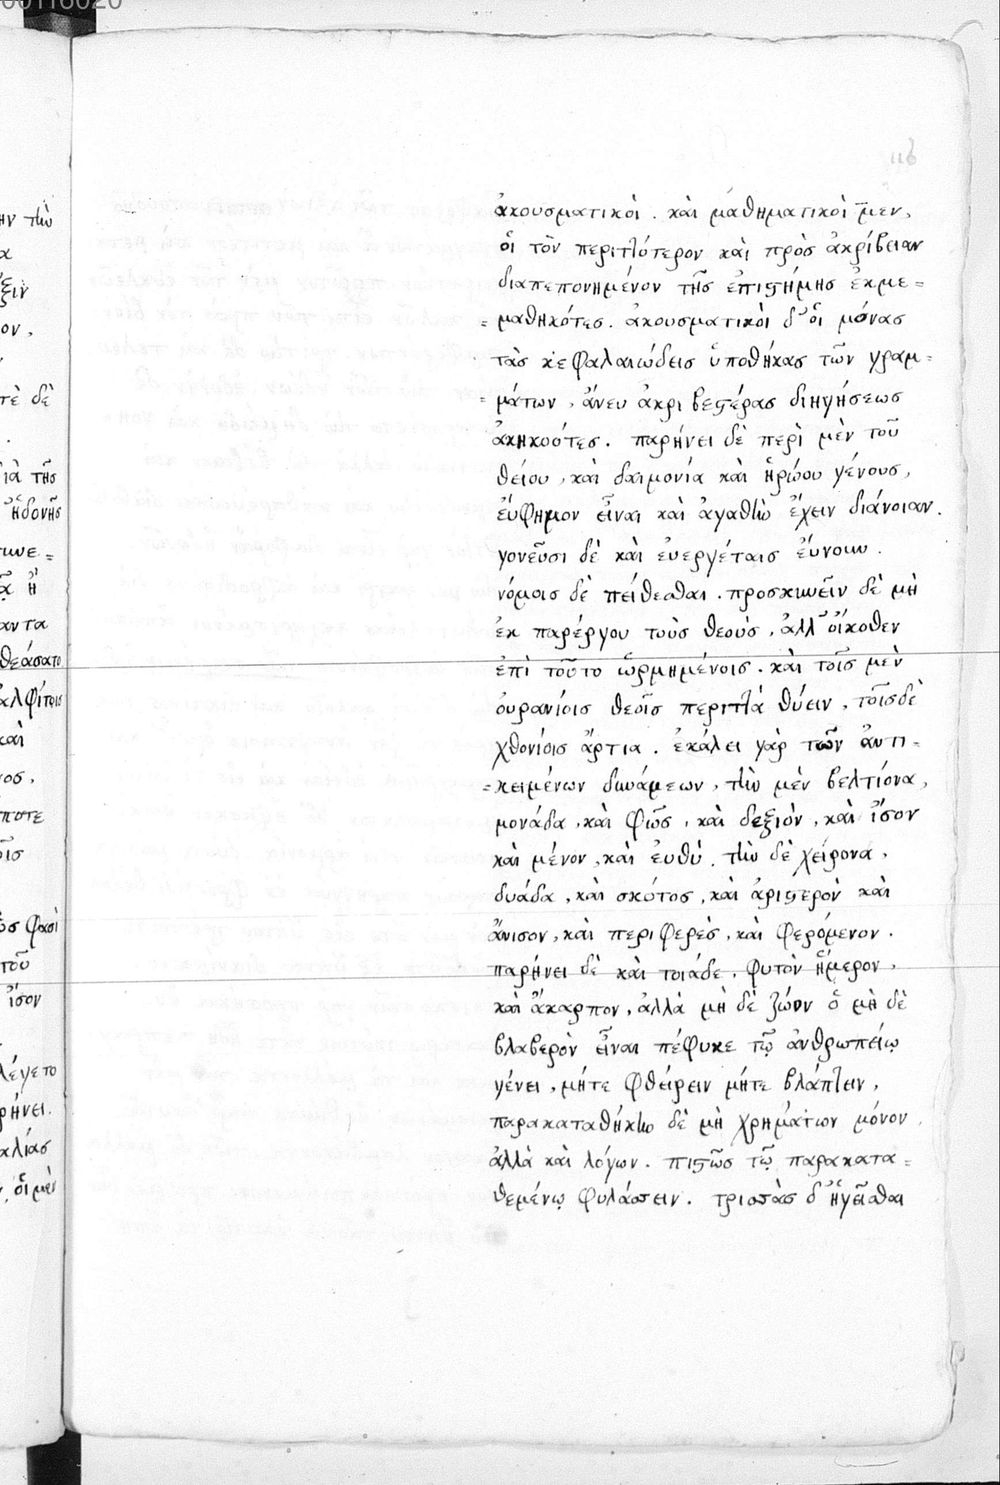 116
ἀκουσματικοὶ . καὶ μαθηματικοὶ μεν,
οἱ τὸν περιττότερον καὶ πρὸσ ἀκρίβειαν
διαπεπονημένον τῆσ ἐπιστήμησ ἐκμε=
=μαθηκότεσ. ἀκουσματικὸι δ' οἱ μόνασ
τὰσ κεφαλαιώδεισ ὑποθήκασ τῶν γραμ=
=μάτων , ἄνευ ἀκριβεστέρασ διηγήσεωσ
ἀκηκοότεσ. παρήνει δὲ περὶ μὲν τοῦ
θείου , καὶ δαιμονία καὶ ἡρώου γένουσ,
ἔυφημον εἶναι καὶ ἀγαθὴν ἔχειν διάνοιαν.
γονεῦσι δὲ καὶ ἐυεργέταισ ἔυνουν .
νόμοισ δὲ πείθεσθαι . προσκυνεῖν δὲ μὴ
ἐκ παρέργου τοὺσ θεούσ , ἀλλ' οἴκοθεν
ἐπὶ τοῦτο ὡρμημένοισ . καὶ τοῖσ μὲν
ὀυρανίοισ θεοῖσ περιττὰ θύειν , τοῖσ δὲ
χθονίοισ ἄρτια . ἐκάλει γὰρ τῶν ἀντι=
=κειμένων δυνάμεων , τὴν μὲν βελτίονα,
μονάδα , καὶ φῶσ , καὶ δεξιὸν , καὶ ἴσον
καὶ μένον , καὶ ἐυθύ . τὴν δὲ χείρονα ,
δυάδα , καὶ σκότοσ , καὶ ἀριστερὸν καὶ
ἄνισον , καὶ περιφερὲσ , καὶ φερόμενον .
παρήνει δὲ καὶ τοιάδε . φυτὸν ἥμερον ,
καὶ ἄκαρπον , ἀλλὰ μὴ δὲ ζώον ὃ μὴ δὲ
βλαβερὸν εἶναι πέφυκε τῷ ἀνθρωπείῳ
γένει , μήτε φθείρειν μήτε βλάπτειν ,
παρακαταθήκην δὲ μὴ χρημάτων μόνον ,
ἀλλὰ καὶ λόγων . πιστῶσ τῷ παρακατα=
θεμένῳ φυλάσσειν . τρισσὰσ δ' ἡγεῖσθαι